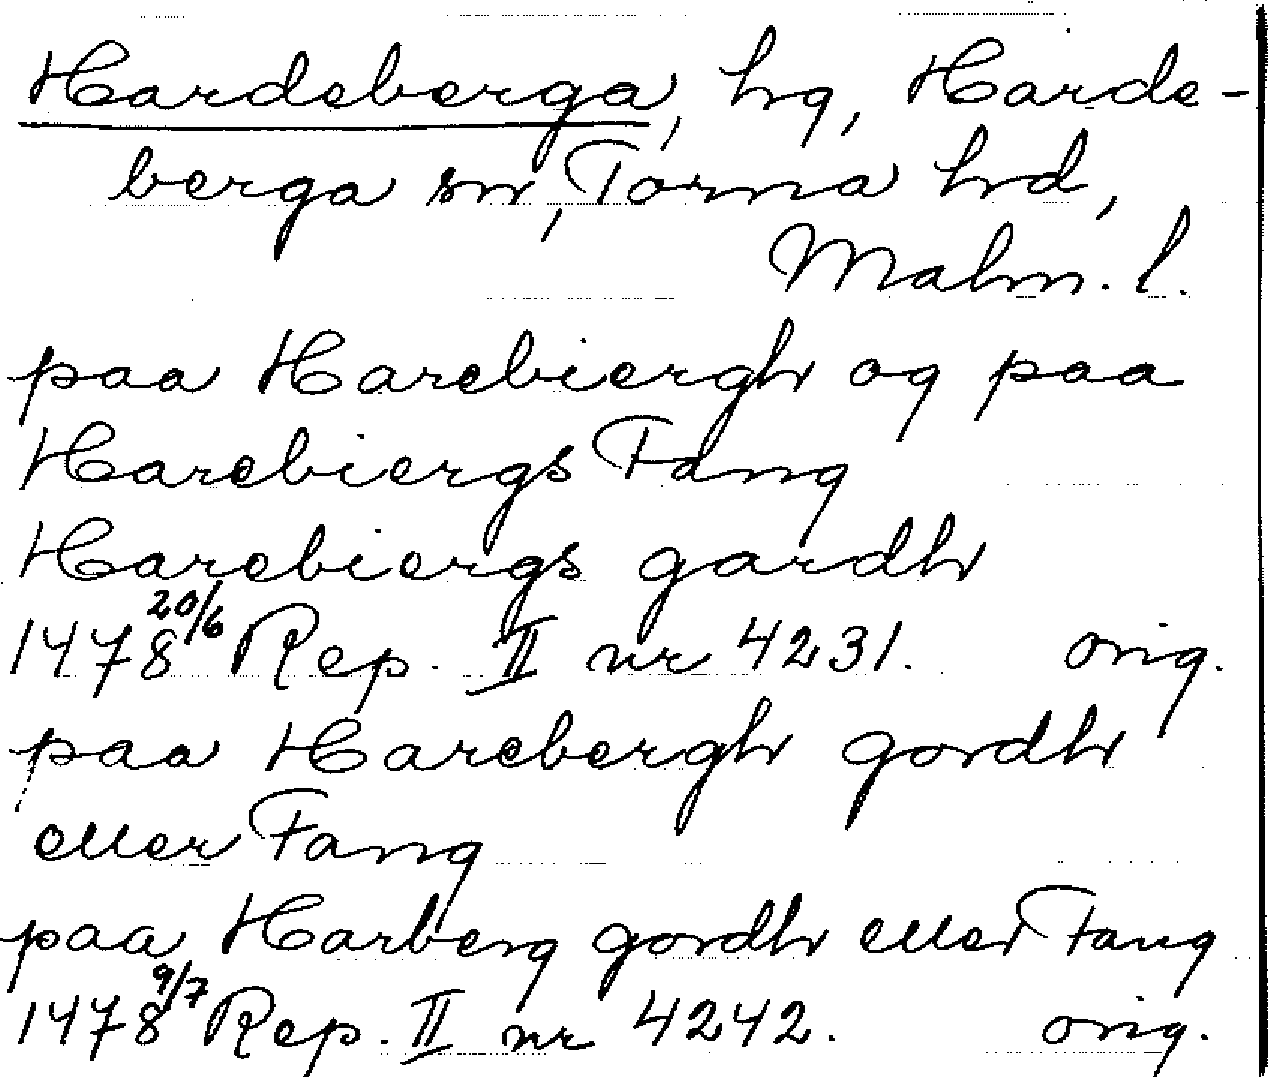 Hardeberga, hg, Harde-
berga sn, Torna hd,
Malm. l.
paa Harebiergh og paa
Harebiergs Fang
Harebiergs gardh
1478 20/6 Rep. II nr 4231. orig.
paa Harebergh gordh
eller Fang
paa Harberg gordh eller Fang
1478 9/7 Rep. II nr 4242. orig.